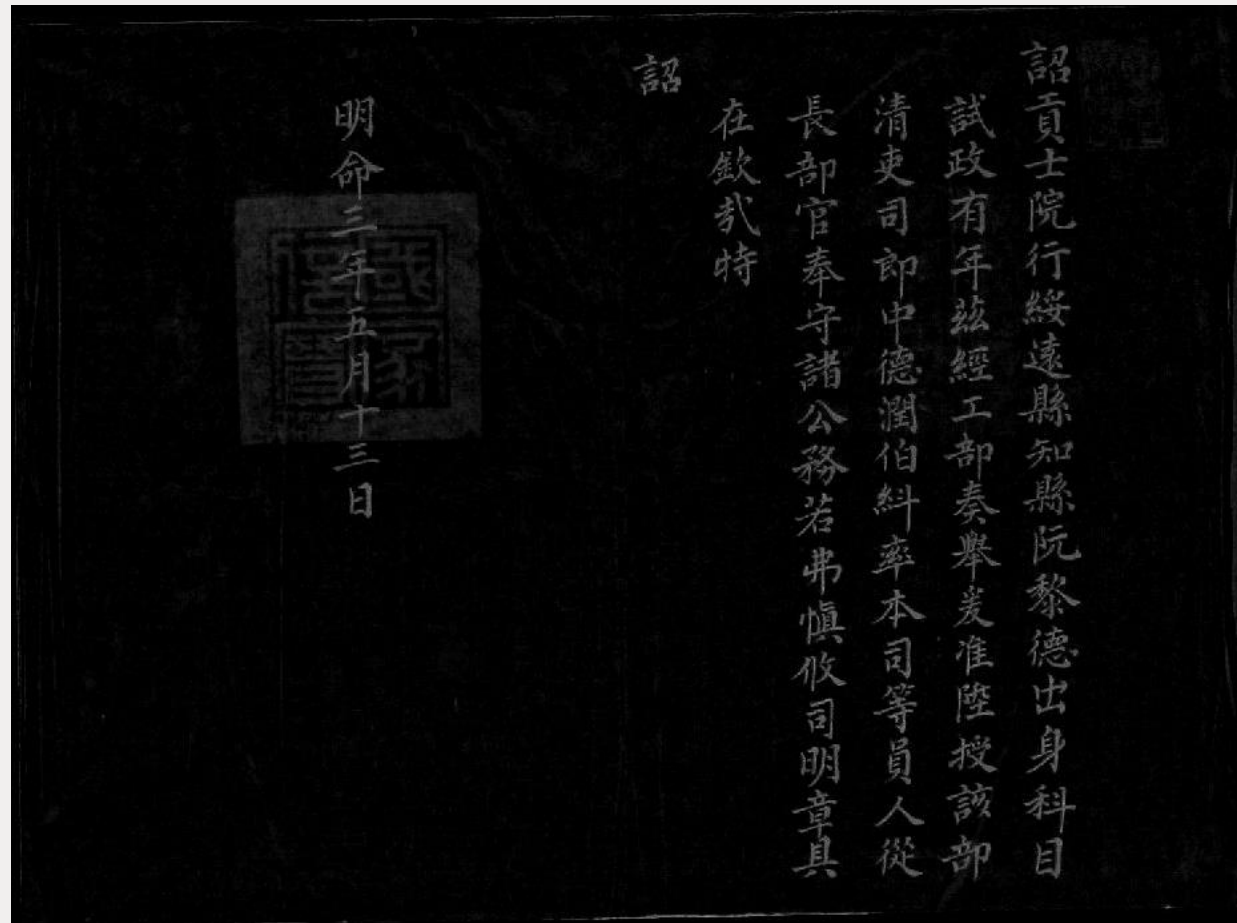 詔貢士院行綏遠縣知縣阮黎德出身科目
試政有年茲經工部奏舉爰准陞授該部
清吏司郎中德潤伯糾率本司等員人從
長部官奉守諸公務若弗慎攸司明章具
在欽哉時
詔
明命三年五月十三日